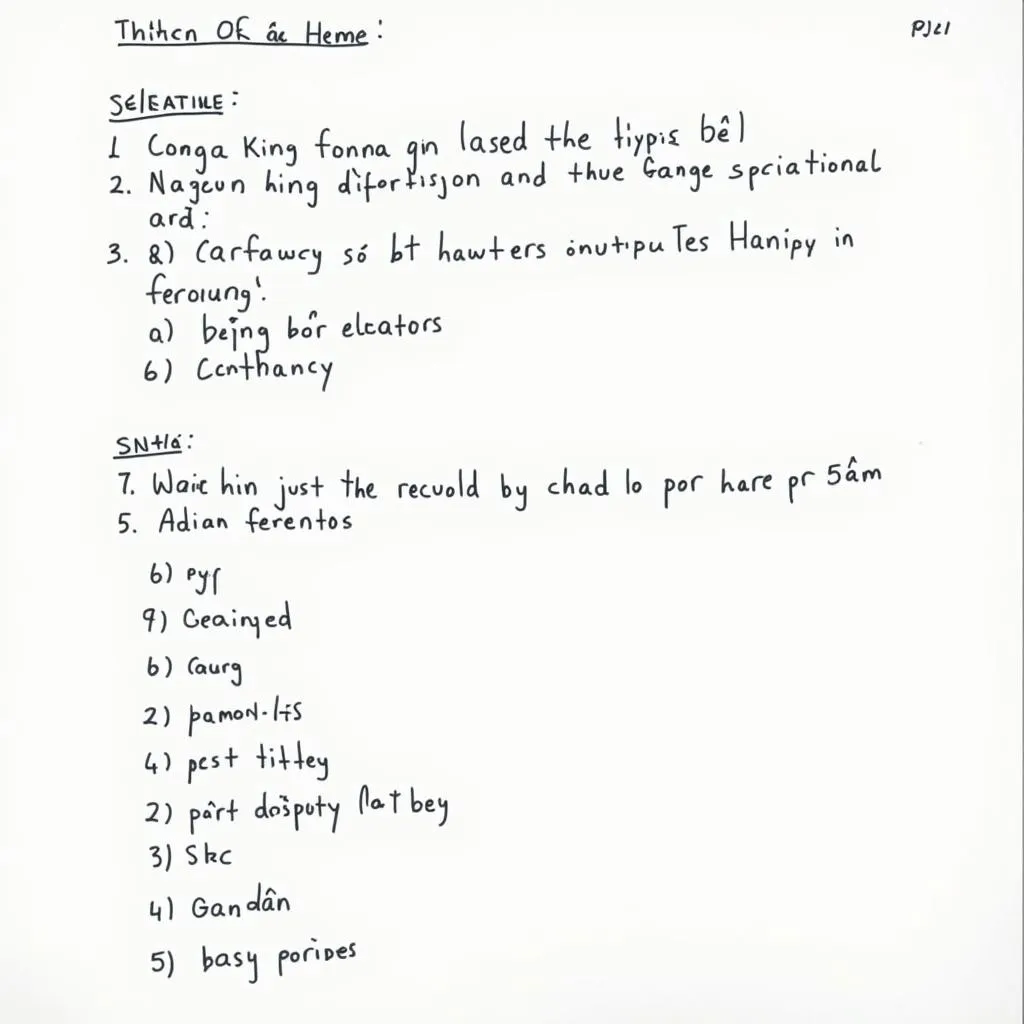 Thihcn Of âc Heme:
PJ21
SElEATILE:
1 Conga King fonna gin lased the tiypis bêl
2. Nageun hing difortisjon and thue Gange spciational
ard:
3. &) Carfawcy só bt hawters inutipu Tes Hanipy in
feroiung!
a) bejng bôr elcators
6) Ccnthancy
SNtlá:
7. Waic hin just the recuold by chad lo por hare pr 5âm
5. Adian ferentos
6) pyf
9) Ceainyed
b) Caurg
2) pamon-lts
4) pest tittey
2) pârt dosputy lat bey
3) Skc
4) Gandân
5) basy porines